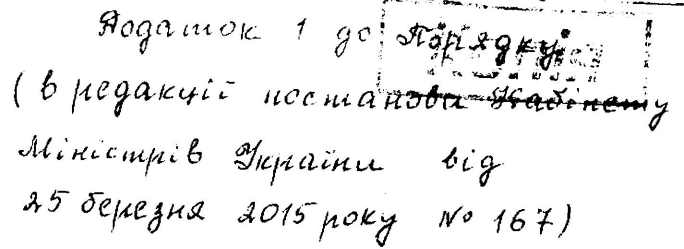 Додаток 1 до Порядку
(в редакції постанови Кабінету
Міністрів України від
25 березня 2015 року № 167)